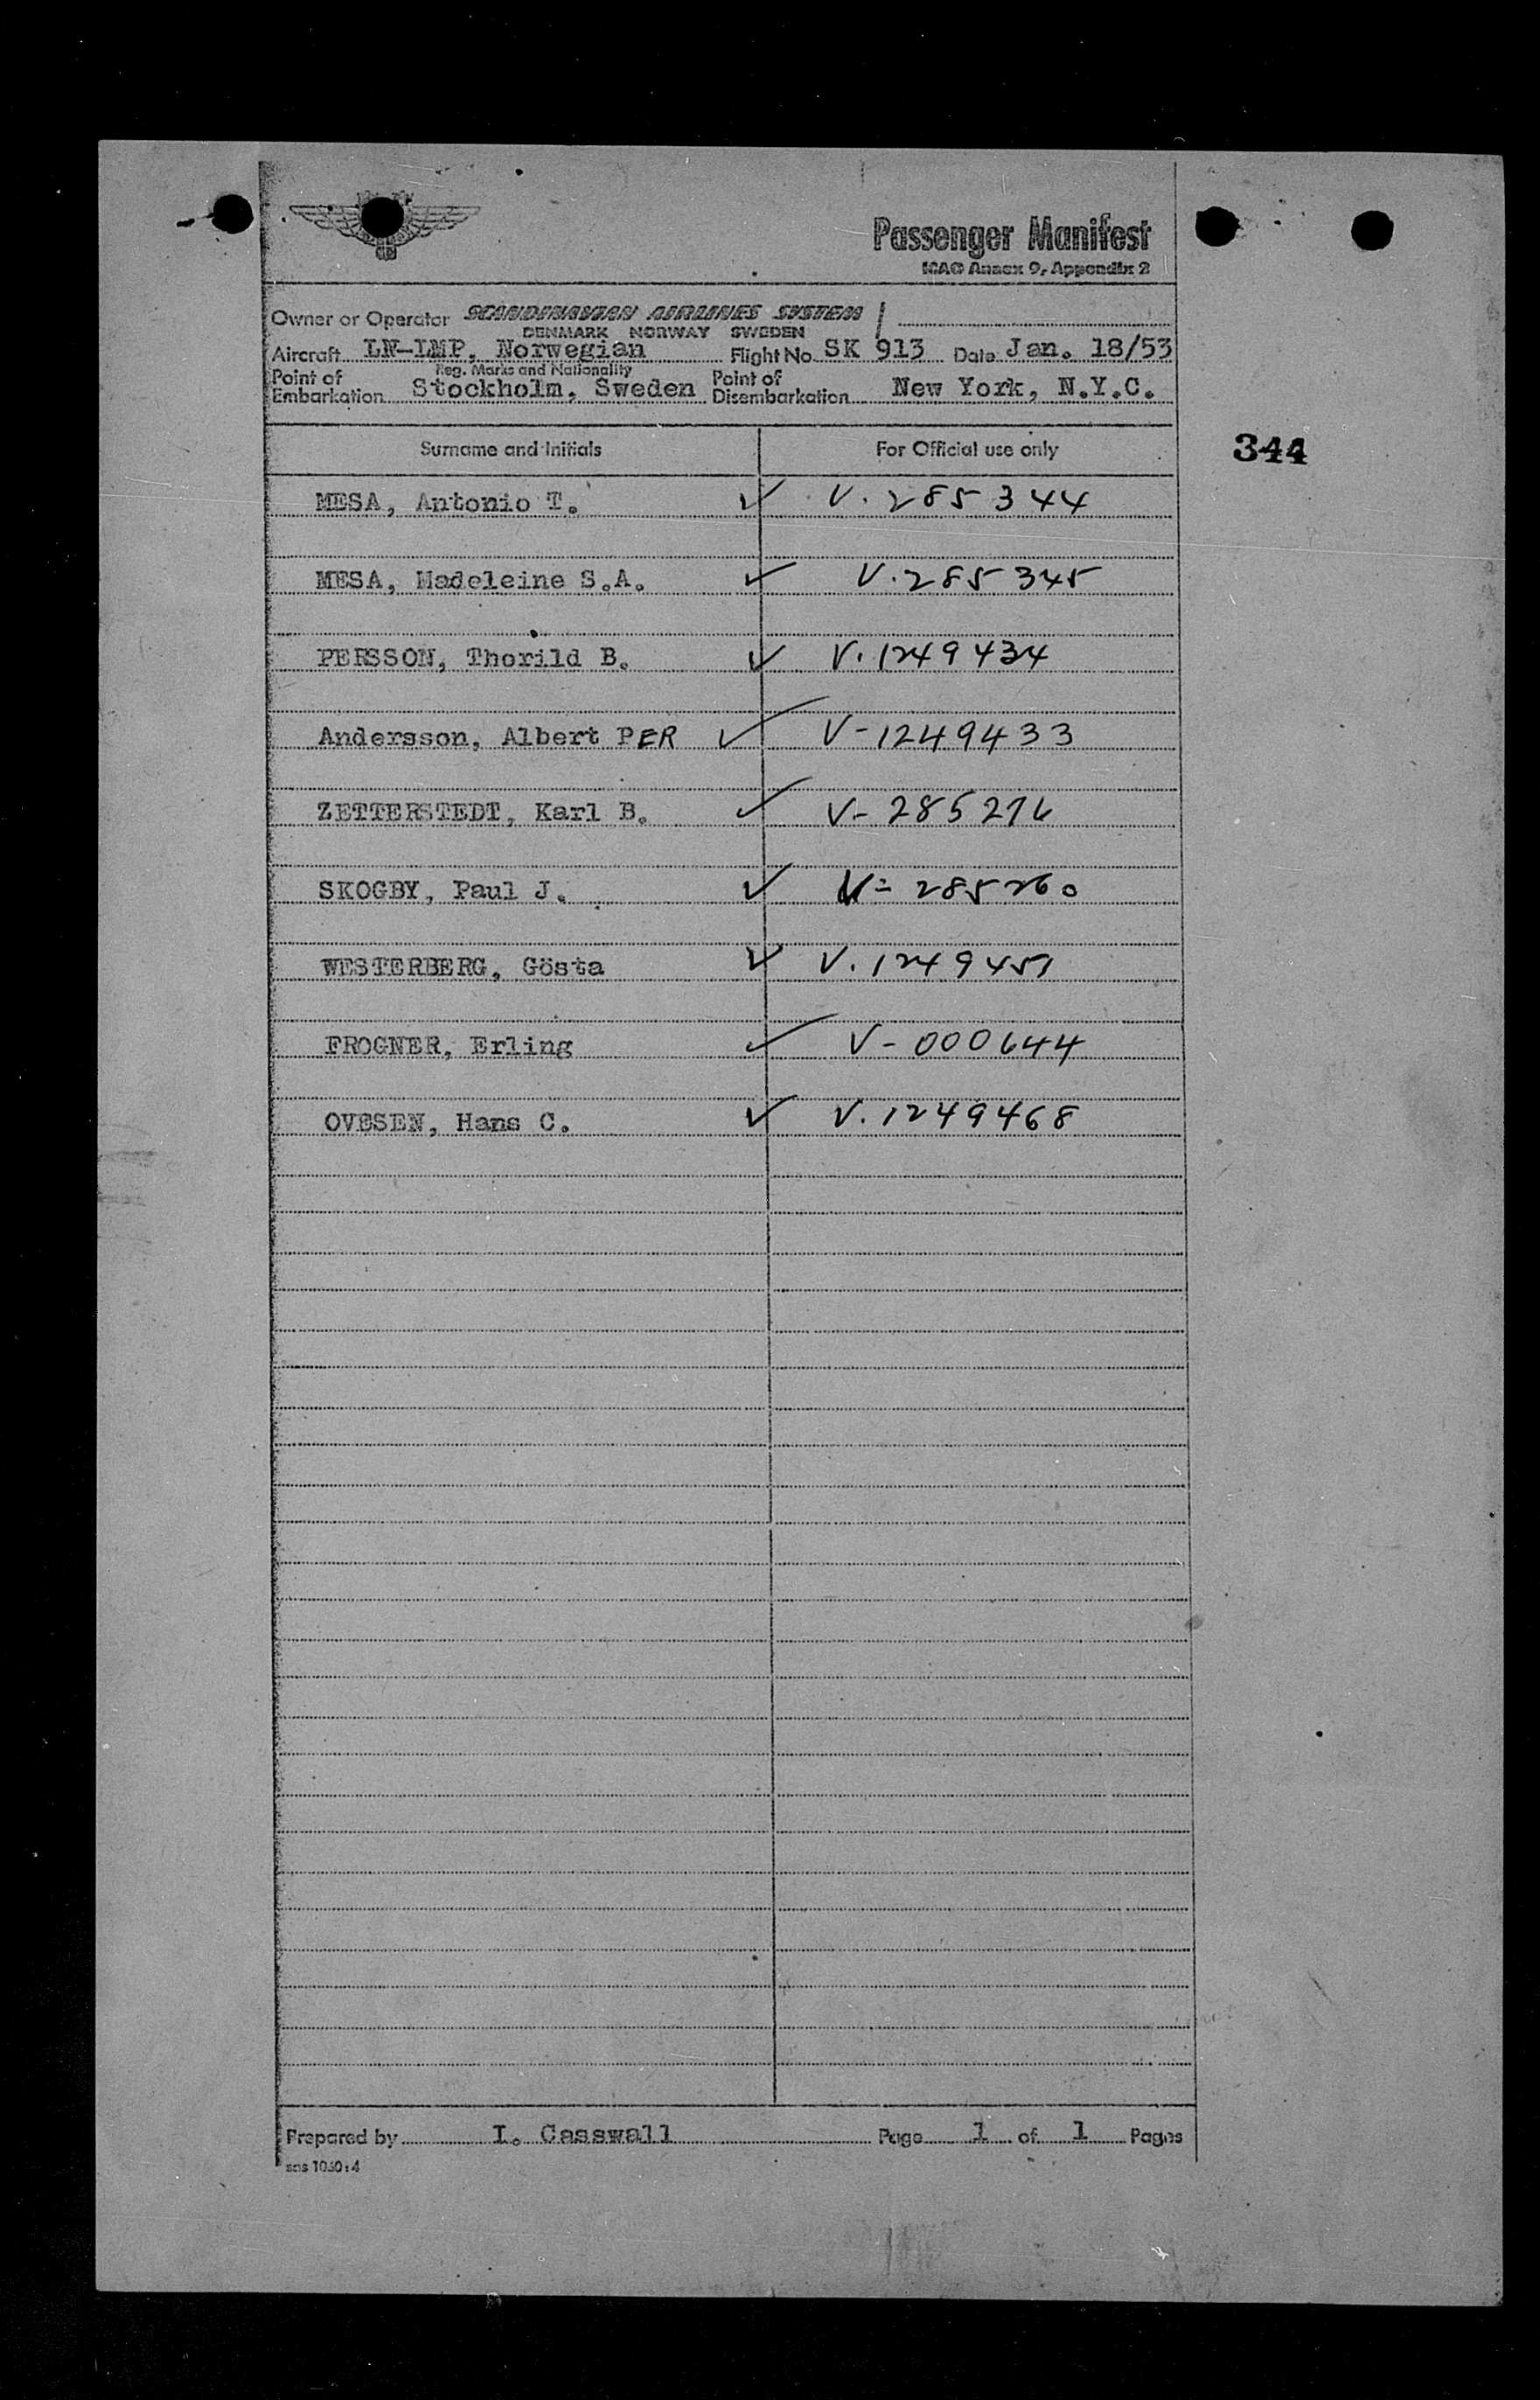 Passenger Manifest
ICAO Annex 9, Appendix 2
Owner or Operator SCANDINAVIAN AIRLINES SYSTEM
DENMARK NORWAY SWEDEN
Aircraft LN-LMP, Norwegian Flight No. SK 913 Date Jan. 18/53
Reg. Marks and Nationality
Point of Embarkation Stockholm, Sweden Point of Disembarkation New York, N.Y.C.
Surname and Initials For Official use only
344
MESA, Antonio T. ✓ V. 285344
MESA, Madeleine S.A. ✓ V. 285345
PERSSON, Thorild B. ✓ V. 1249434
Andersson, Albert PER ✓ V-1249433
ZETTERSTEDT, Karl B. ✓ V- 285276
SKOGBY, Paul J. ✓ V- 285260
WESTERBERG, Gösta ✓ V. 1249451
FROGNER, Erling ✓ V- 000644
OVESEN, Hans C. ✓ V. 1249468
Prepared by I. Casswall Page 1 of 1 Pages
sas 1050:4